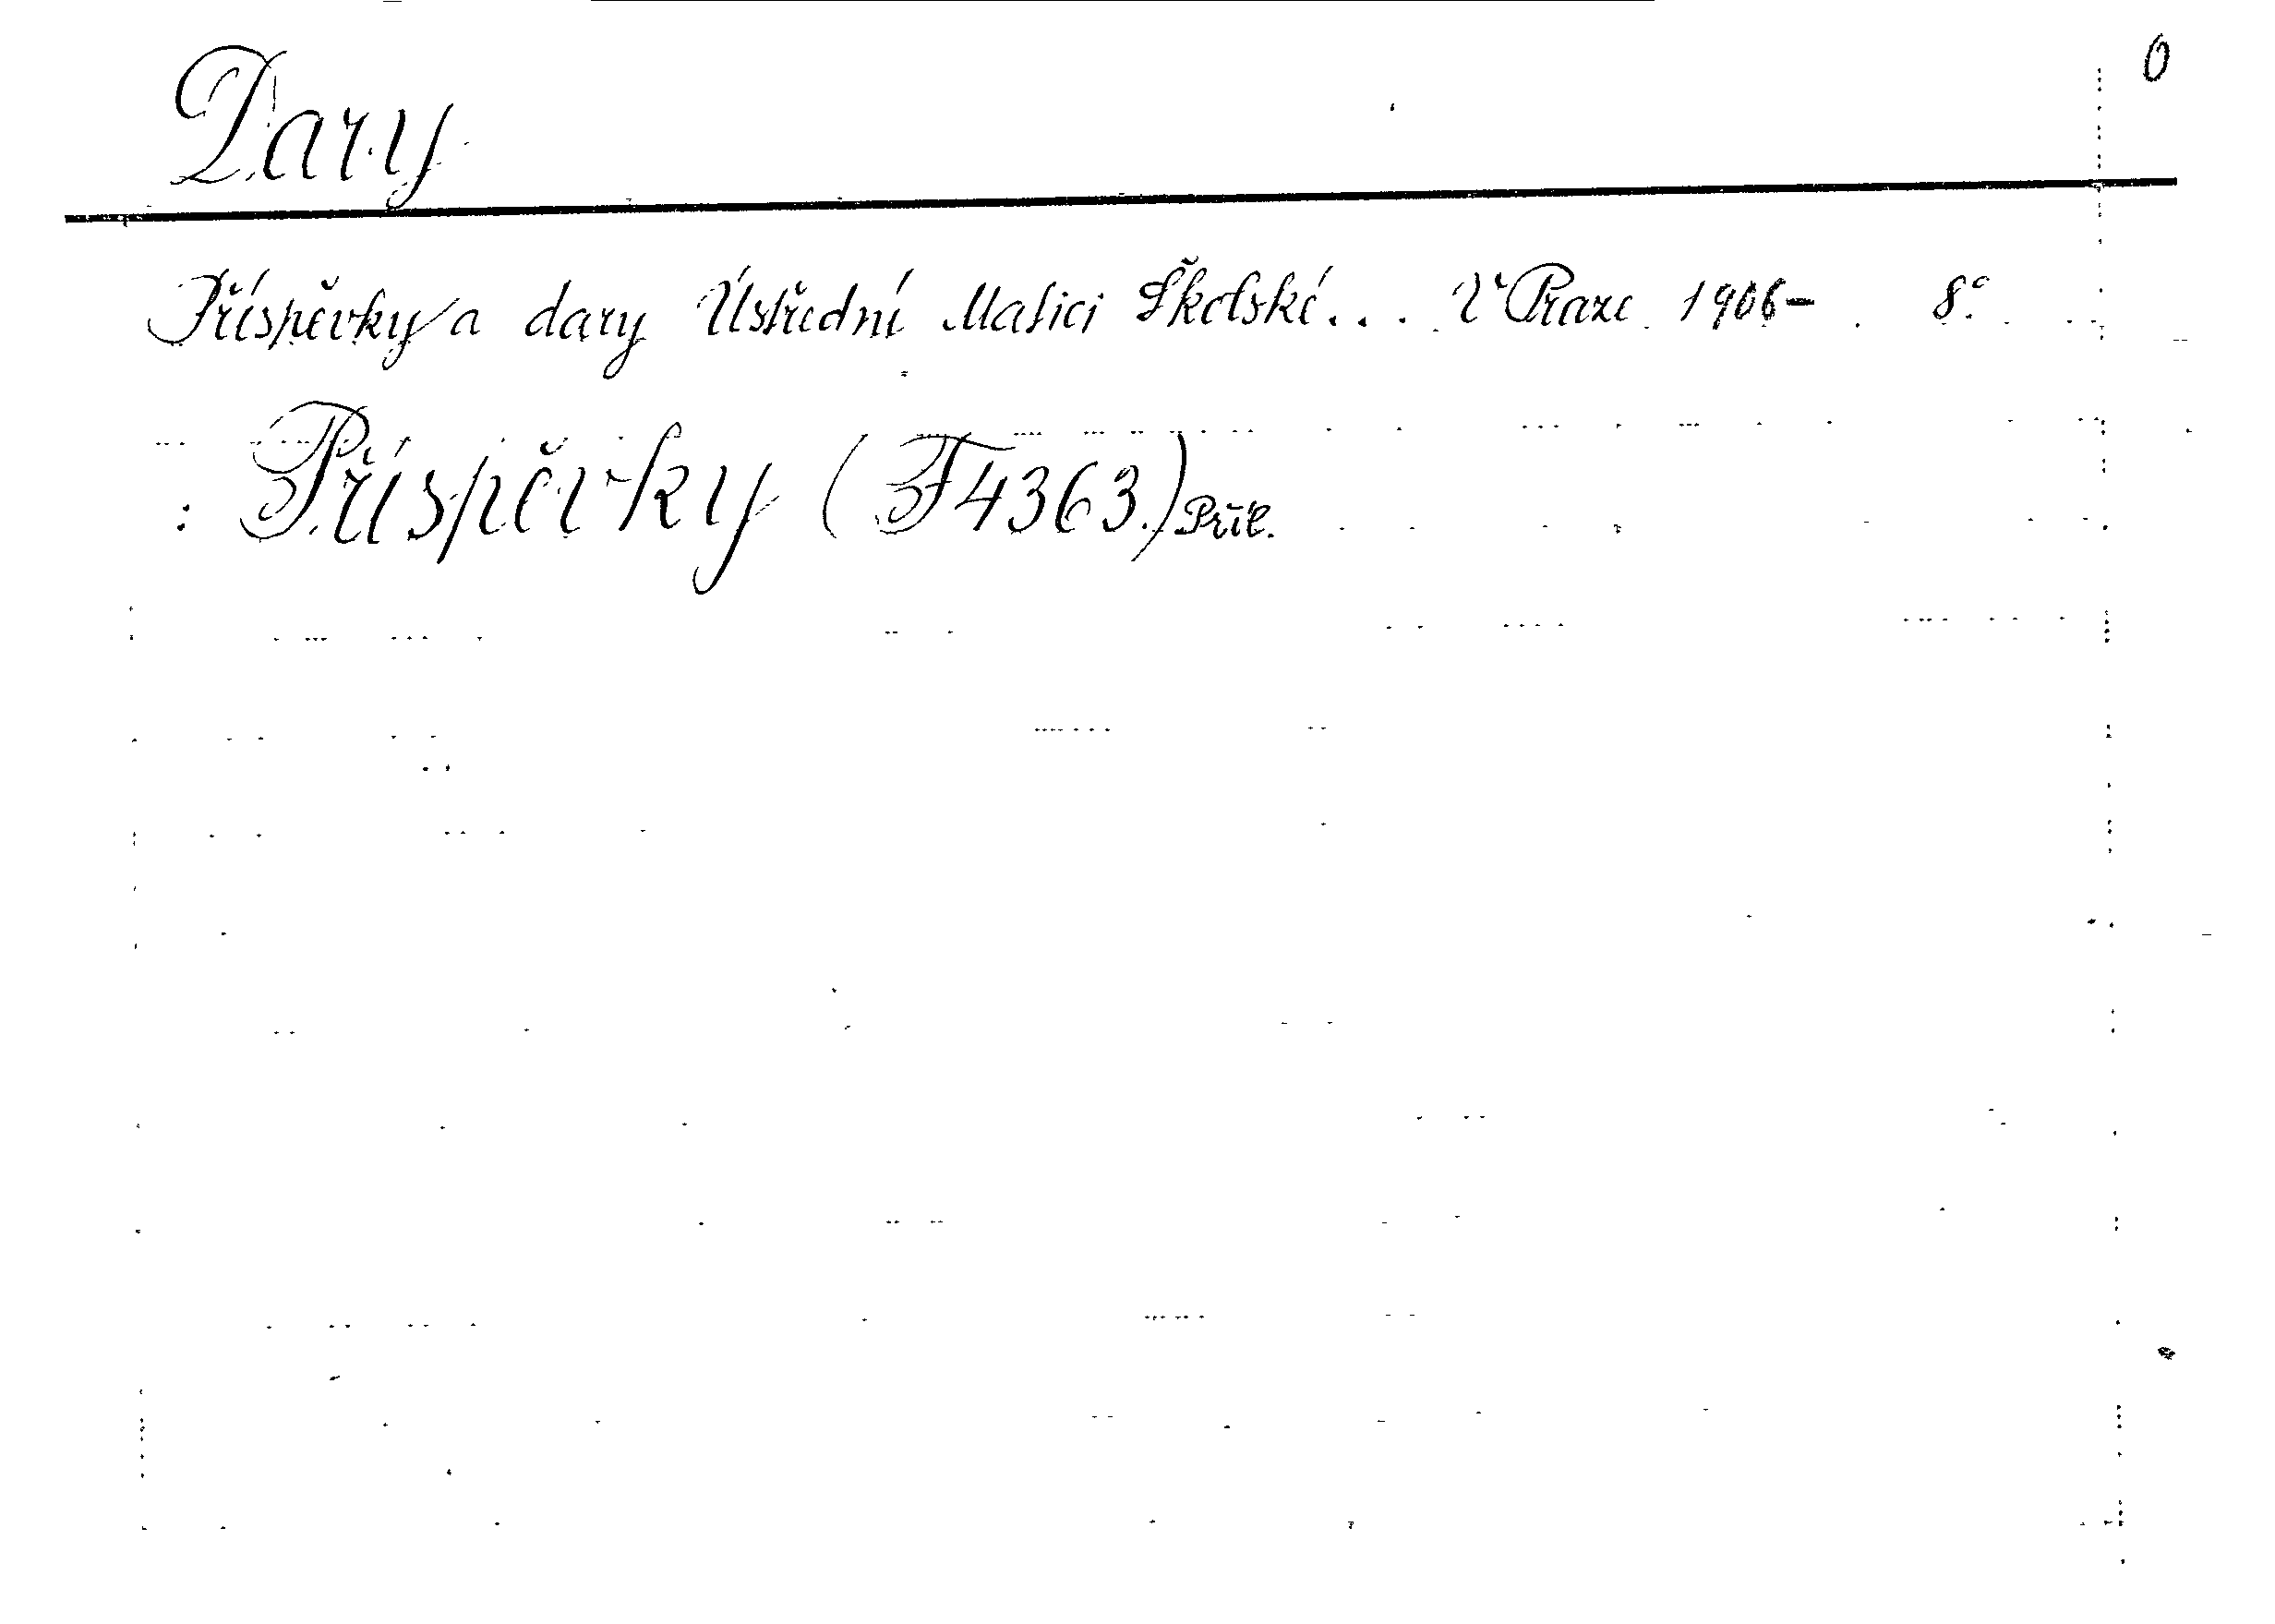 Dary
0
Příspěvky a dary Ústřední Matici Školské... V Praze 1906- 8°.
: Příspěvky (F4363.) Příl.